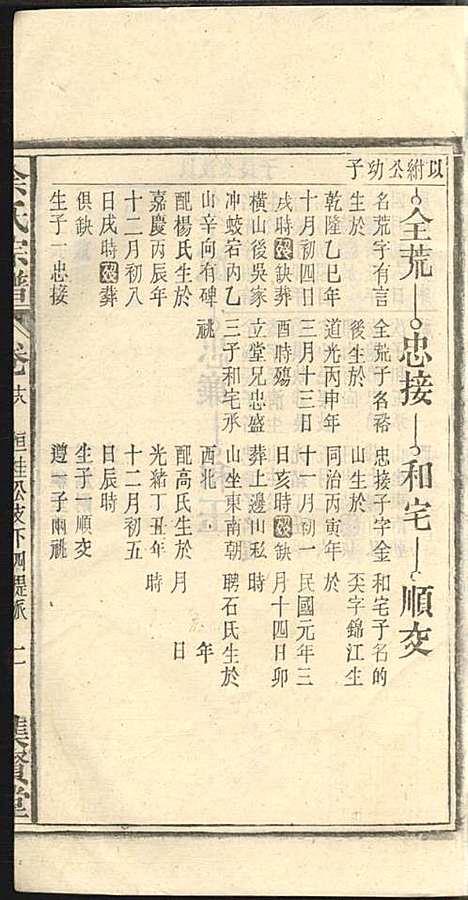 以紺公功子
全荒
忠接
和宅
順交
名荒字有言
生於
乾隆乙巳年
十月初四日
戌時歿缺葬
橫山後吳家
冲蛟宕內乙
山辛向有碑
配楊氏生於
嘉慶丙辰年
十二月初八
日戌時歿葬
俱缺
生子一忠接
全荒子名裕
後生於
道光丙申年
三月十三日
酉時殤
立堂兄忠盛
三子和宅承
祧
忠接子字金
山生於
同治丙寅年
十一月初一
日亥時歿缺
葬上邊山私
山坐東南朝
西北
配高氏生於
光緒丁丑年
十二月初五
日辰時
生子一順交
遵子兩祧
和宅子名的
字錦江生
於
民國元年三
月十四日卯
時
聘石氏生於
年
月 日
時
氏宗譜
卷
集賢堂